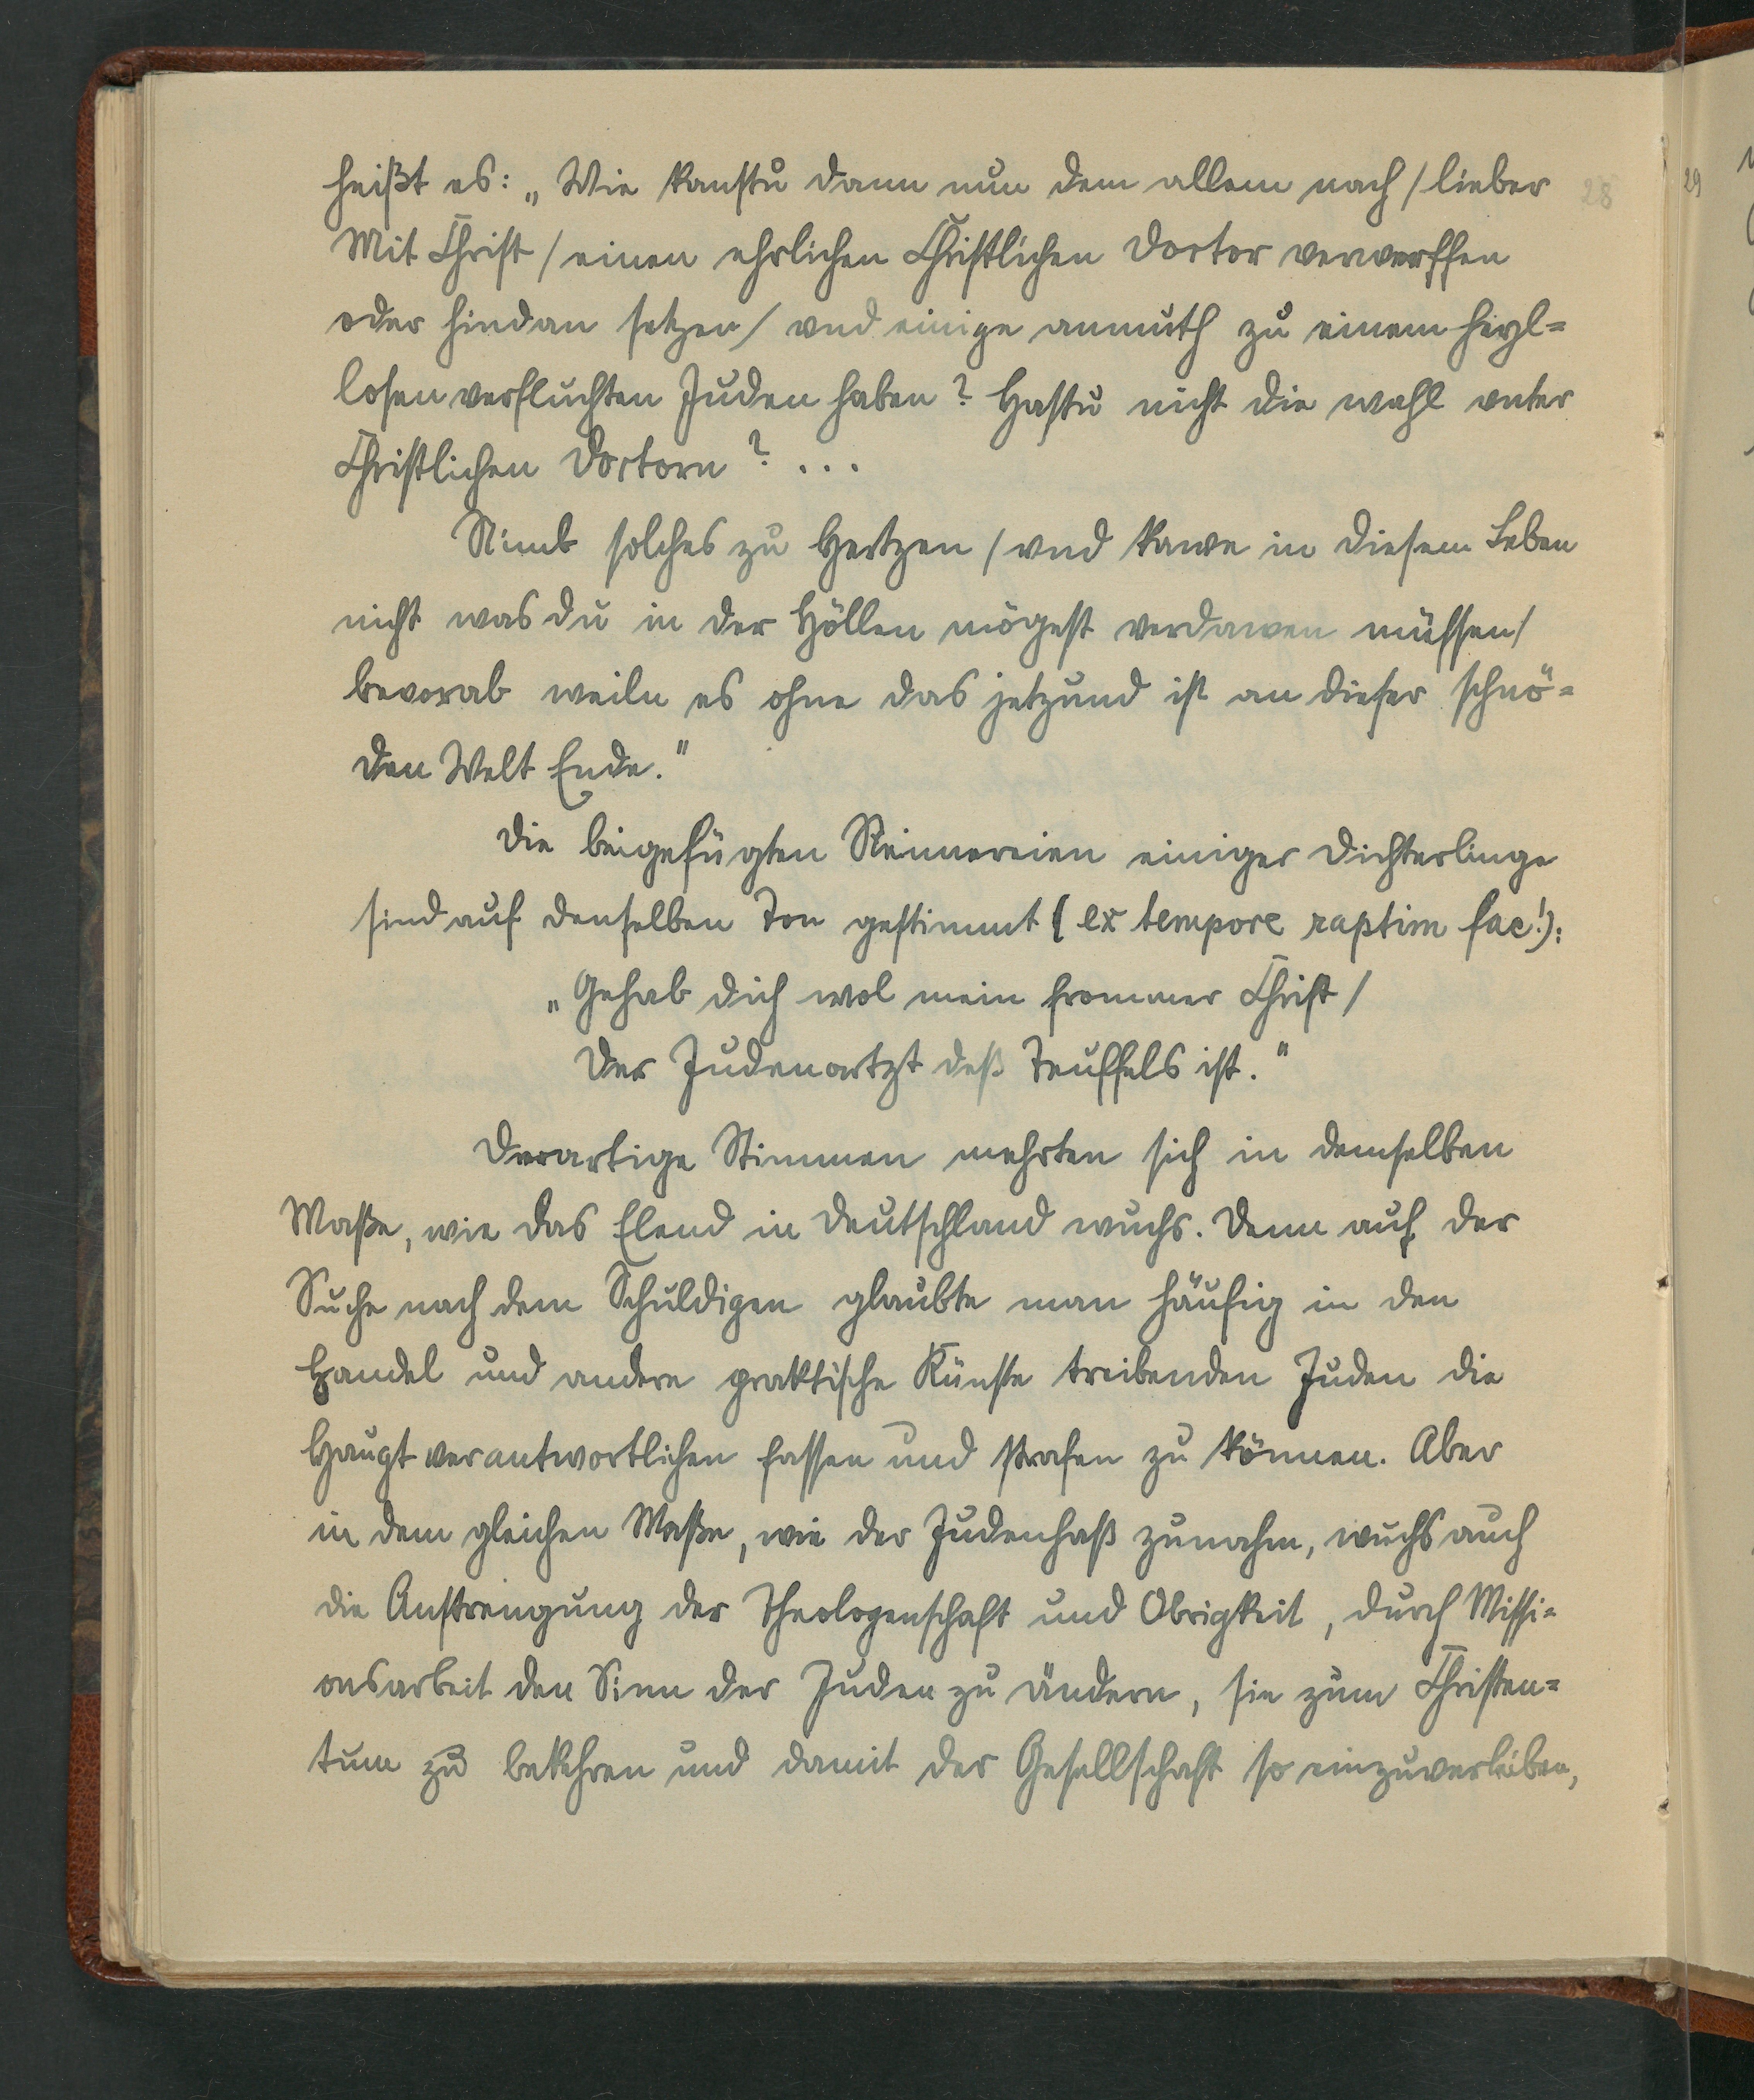 heißt es: „Wie kanstu dann nun dem allem nach / lieber
28
29
Mit Christ / einen ehrlichen Christlichen Doctor verwerffen
oder hindan setzen / vnd einige anmuth zu einem heyl=
losen verfluchten Juden haben? Hastu nicht die wahl vnter
Christlichen Doctorn? ...
Nimb solches zu Hertzen / vnd kawe in diesem Leben
nicht was du in der Höllen mögest verdawen müssen /
bevorab weiln es ohne das jetzund ist an dieser schnö=
den Welt Ende."
Die beigefügten Reimereien einiger Dichterlinge
sind auf denselben Ton gestimmt (ex tempore raptim fac!):
„Gehab dich wol mein frommer Christ /
Der Judenartzt deß Teuffels ist."
Derartige Stimmen mehrten sich in demselben
Maße, wie das Elend in Deutschland wuchs. Denn auf der
Suche nach dem Schuldigen glaubte man häufig in den
Handel und andere praktische Künste treibenden Juden die
Hauptverantwortlichen fassen und strafen zu können. Aber
in dem gleichen Maße, wie der Judenhaß zunahm, wuchs auch
die Anstrengung der Theologenschaft und Obrigkeit, durch Missi=
onsarbeit den Sinn der Juden zu ändern, sie zum Christen=
tum zu bekehren und damit der Gesellschaft so einzuverleiben,